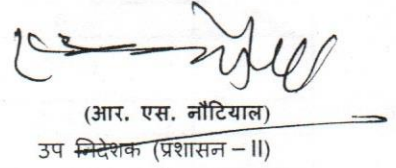 (आर. एस. नौटियाल)
उप निदेशक (प्रशासन – II)